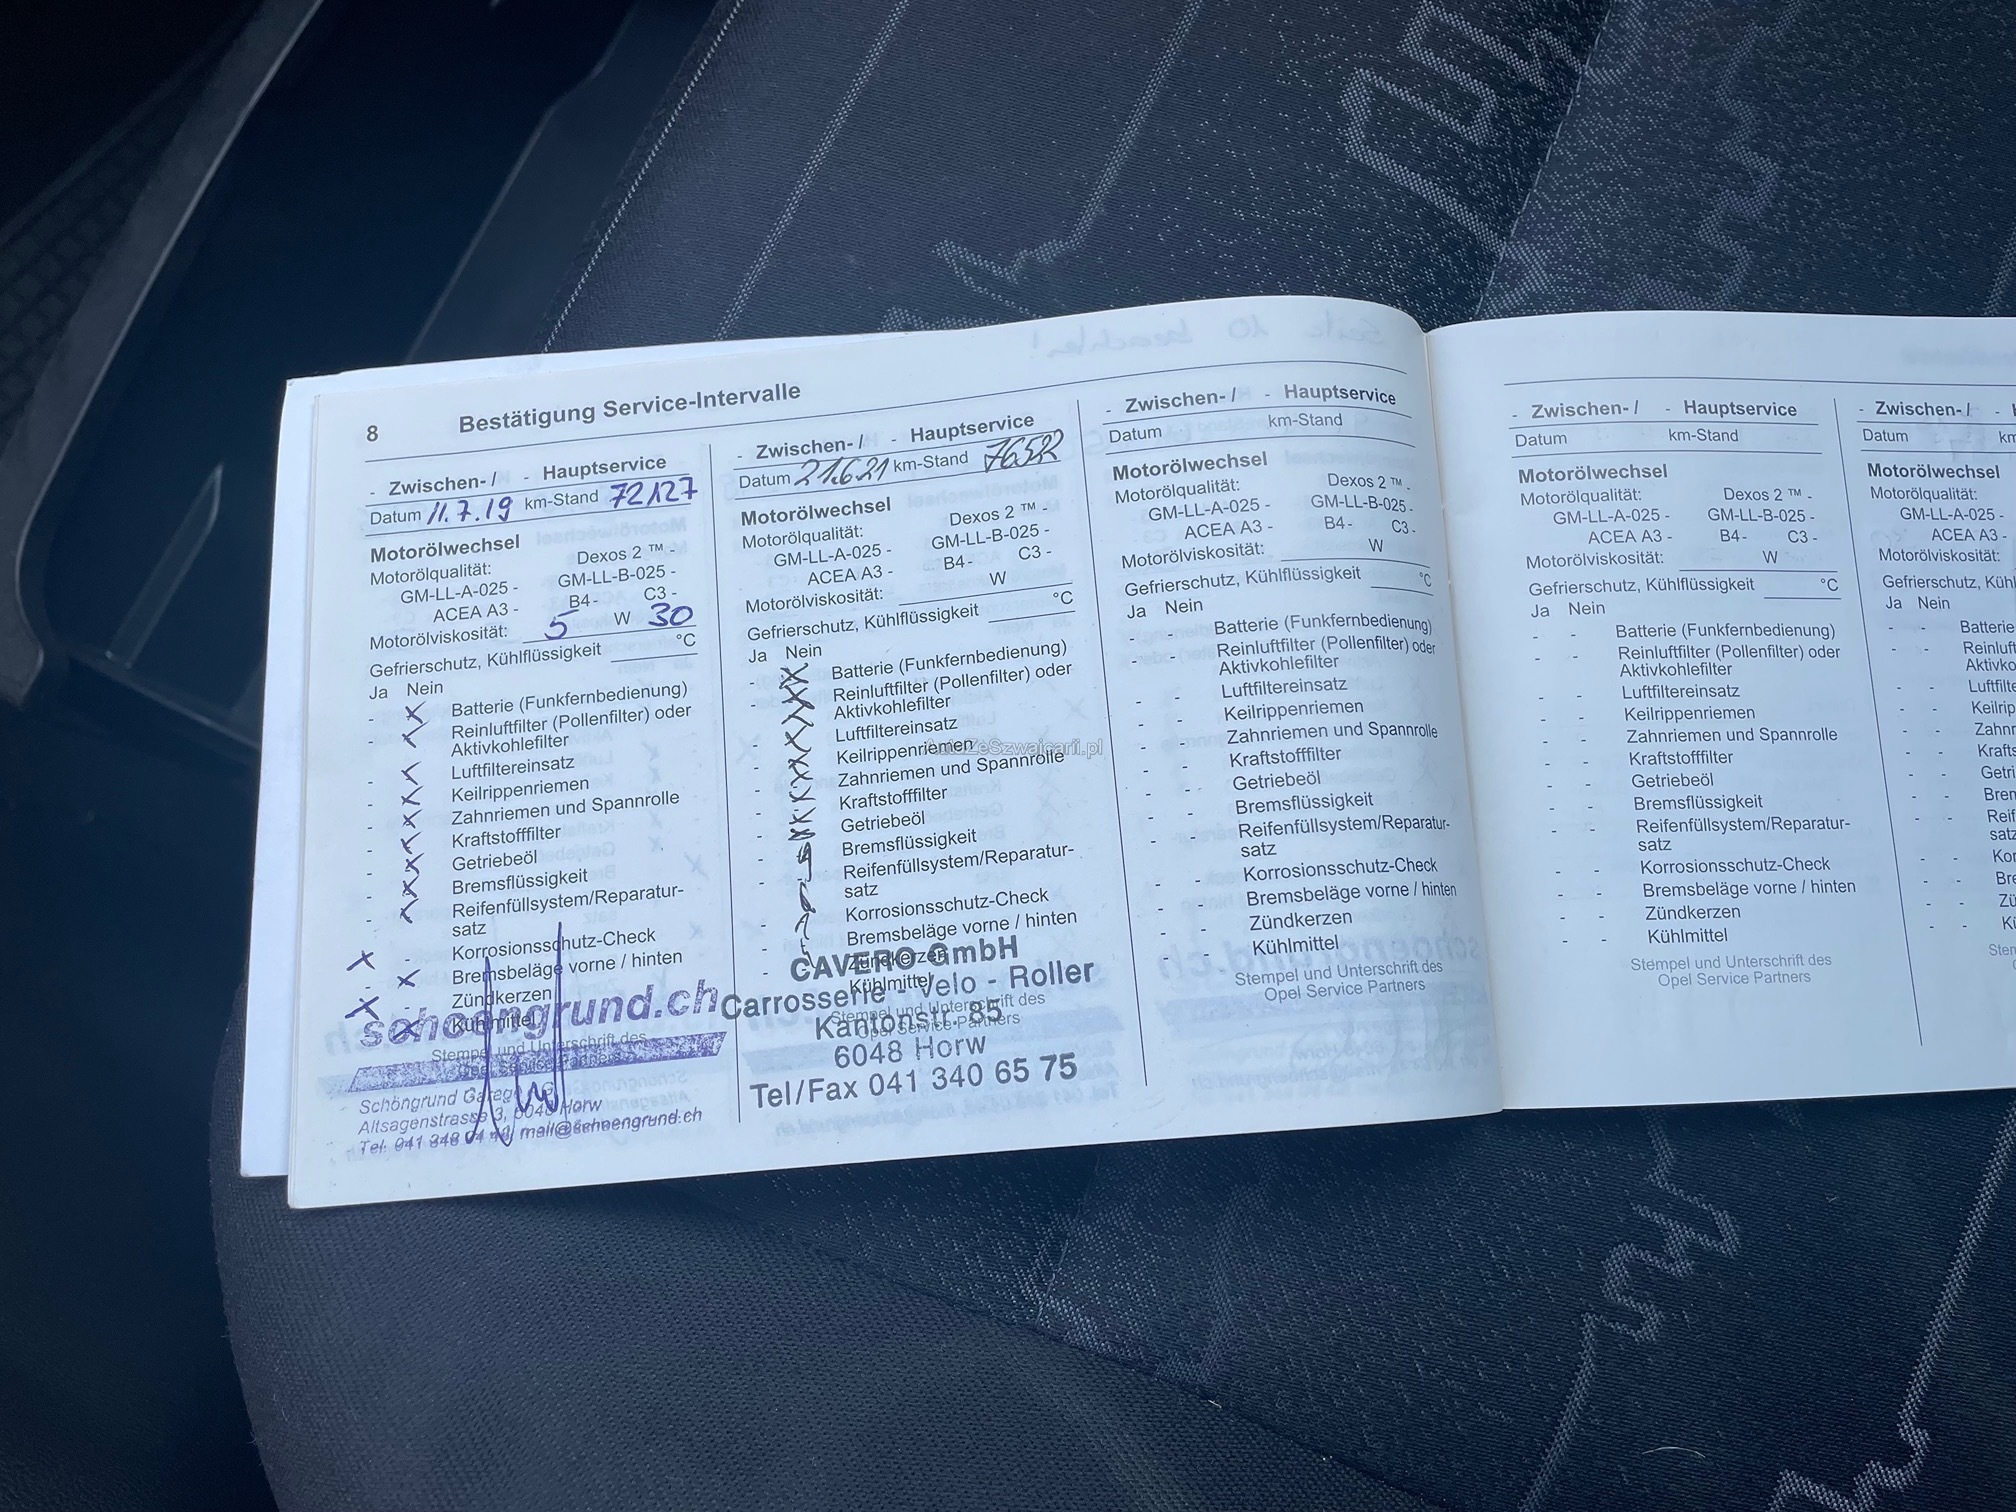 8
Bestätigung Service-Intervalle
- Zwischen- / - Hauptservice
Datum 11.7.19 km-Stand 72127
Motorölwechsel
Motorölqualität: Dexos 2 ™ -
GM-LL-A-025 - GM-LL-B-025 -
ACEA A3 - B4 - C3 -
Motorölviskosität: 5 W 30
Gefrierschutz, Kühlflüssigkeit °C
Ja Nein
- x Batterie (Funkfernbedienung)
- x Reinluftfilter (Pollenfilter) oder
Aktivkohlefilter
- x Luftfiltereinsatz
- x Keilrippenriemen
- x Zahnriemen und Spannrolle
- x Kraftstofffilter
- x Getriebeöl
- x Bremsflüssigkeit
- x Reifenfüllsystem/Reparatur-
satz
x - Korrosionsschutz-Check
- x Bremsbeläge vorne / hinten
x - Zündkerzen
- x Kühlmittel
Stempel und Unterschrift des
Opel Service Partners
schoengrund.ch
Schöngrund Garage AG
Altsagenstrasse 3, 6048 Horw
mail@schoengrund.ch
- Zwischen- / - Hauptservice
Datum 21.6.21 km-Stand 76522
Motorölwechsel
Motorölqualität: Dexos 2 ™ -
GM-LL-A-025 - GM-LL-B-025 -
ACEA A3 - B4- C3 -
Motorölviskosität: W
Gefrierschutz, Kühlflüssigkeit °C
Ja Nein
Batterie (Funkfernbedienung)
Reinluftfilter (Pollenfilter) oder
Aktivkohlefilter
Luftfiltereinsatz
Keilrippenriemen
Zahnriemen und Spannrolle
Kraftstofffilter
Getriebeöl
Bremsflüssigkeit
Reifenfüllsystem/Reparatur-
satz
Korrosionsschutz-Check
Bremsbeläge vorne / hinten
Zündkerzen
Kühlmittel
Stempel und Unterschrift des
Opel Service Partners
CAVERO GmbH
Carrosserie - Velo - Roller
Kantonstr. 85
6048 Horw
Tel/Fax 041 340 65 75
AutaZeSzwajcarii.pl
- Zwischen- / - Hauptservice
Datum km-Stand
Motorölwechsel
Motorölqualität: Dexos 2 ™ -
GM-LL-A-025 - GM-LL-B-025 -
ACEA A3 - B4 - C3 -
Motorölviskosität: W
Gefrierschutz, Kühlflüssigkeit °C
Ja Nein
- - Batterie (Funkfernbedienung)
- - Reinluftfilter (Pollenfilter) oder
Aktivkohlefilter
- - Luftfiltereinsatz
- - Keilrippenriemen
- - Zahnriemen und Spannrolle
- - Kraftstofffilter
- - Getriebeöl
- - Bremsflüssigkeit
- - Reifenfüllsystem/Reparatur-
satz
- - Korrosionsschutz-Check
- - Bremsbeläge vorne / hinten
- - Zündkerzen
- - Kühlmittel
Stempel und Unterschrift des
Opel Service Partners
- Zwischen- / - Hauptservice
Datum km-Stand
Motorölwechsel
Motorölqualität: Dexos 2 ™ -
GM-LL-A-025 - GM-LL-B-025 -
ACEA A3 - B4 - C3 -
Motorölviskosität: W
Gefrierschutz, Kühlflüssigkeit °C
Ja Nein
- - Batterie (Funkfernbedienung)
- - Reinluftfilter (Pollenfilter) oder
Aktivkohlefilter
- - Luftfiltereinsatz
- - Keilrippenriemen
- - Zahnriemen und Spannrolle
- - Kraftstofffilter
- - Getriebeöl
- - Bremsflüssigkeit
- - Reifenfüllsystem/Reparatur-
satz
- - Korrosionsschutz-Check
- - Bremsbeläge vorne / hinten
- - Zündkerzen
- - Kühlmittel
Stempel und Unterschrift des
Opel Service Partners
- Zwischen- /
Datum
Motorölwechsel
Motorölqualität:
GM-LL-A-025
ACEA A3 -
Motorölviskosität:
Ja Nein